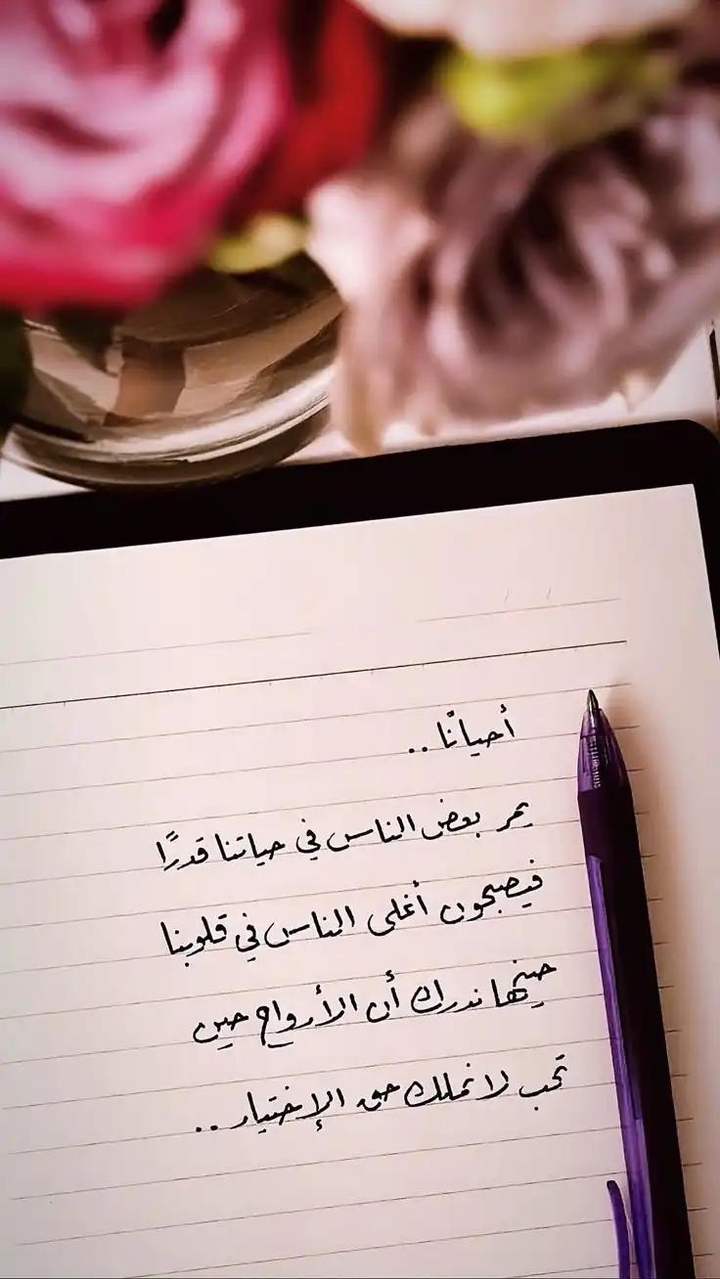 أحيانًا ..
يمر بعض الناس في حياتنا قدرًا
فيصبحون أغلى الناس في قلوبنا
حينها ندرك أن الأرواح حين
تحب لا نملك حق الإختيار ..